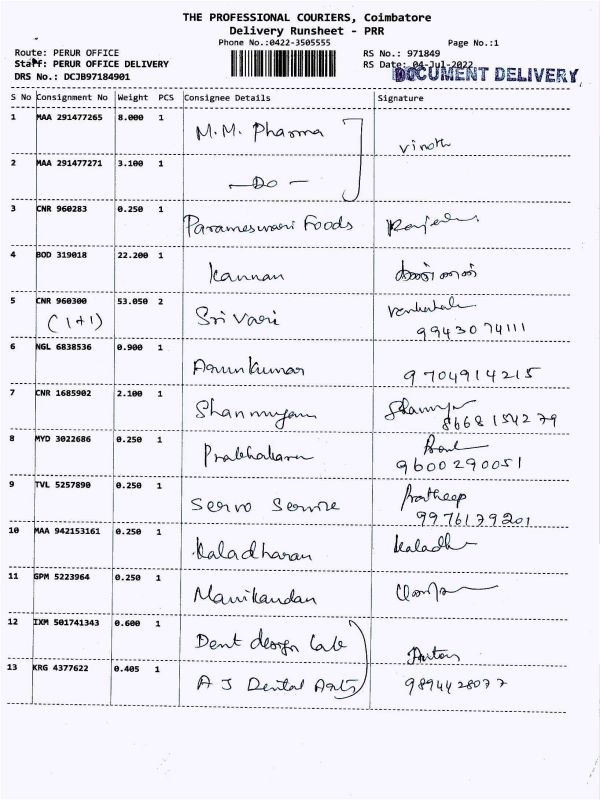 THE PROFESSIONAL COURIERS, Coimbatore
Delivery Runsheet - PRR
Phone No.:0422-3505555 Page No.:1
Route: PERUR OFFICE RS No.: 971849
Staff: PERUR OFFICE DELIVERY RS Date: 04-Jul-2022
DOCUMENT DELIVERY
DRS No.: DCJB97184901
S No Consignment No Weight PCS Consignee Details Signature
1 MAA 291477265 8.000 1 M.M. Pharma
Vinoth
2 MAA 291477271 3.100 1
—Do—
3 CNR 960283 0.250 1
Parameswari Foods
4 BOD 319018 22.200 1
Kannan கண்ணன்
5 CNR 960300 53.050 2
(1+1) Sri Vari 9943074111
6 NGL 6838536 0.900 1
Arunkumar 9704914215
7 CNR 1685902 2.100 1
Shanmugam 8668154279
8 MYD 3022686 0.250 1
Prabhakaran 9600290051
9 TVL 5257890 0.250 1 Pratheep
Servo Service 9976179201
10 MAA 942153161 0.250 1
Kaladharan Kaladh
11 GPM 5223964 0.250 1
Manikandan
12 IXM 501741343 0.600 1
Dent design Lab
13 KRG 4377622 0.405 1
A J Dental Arts 9894428077